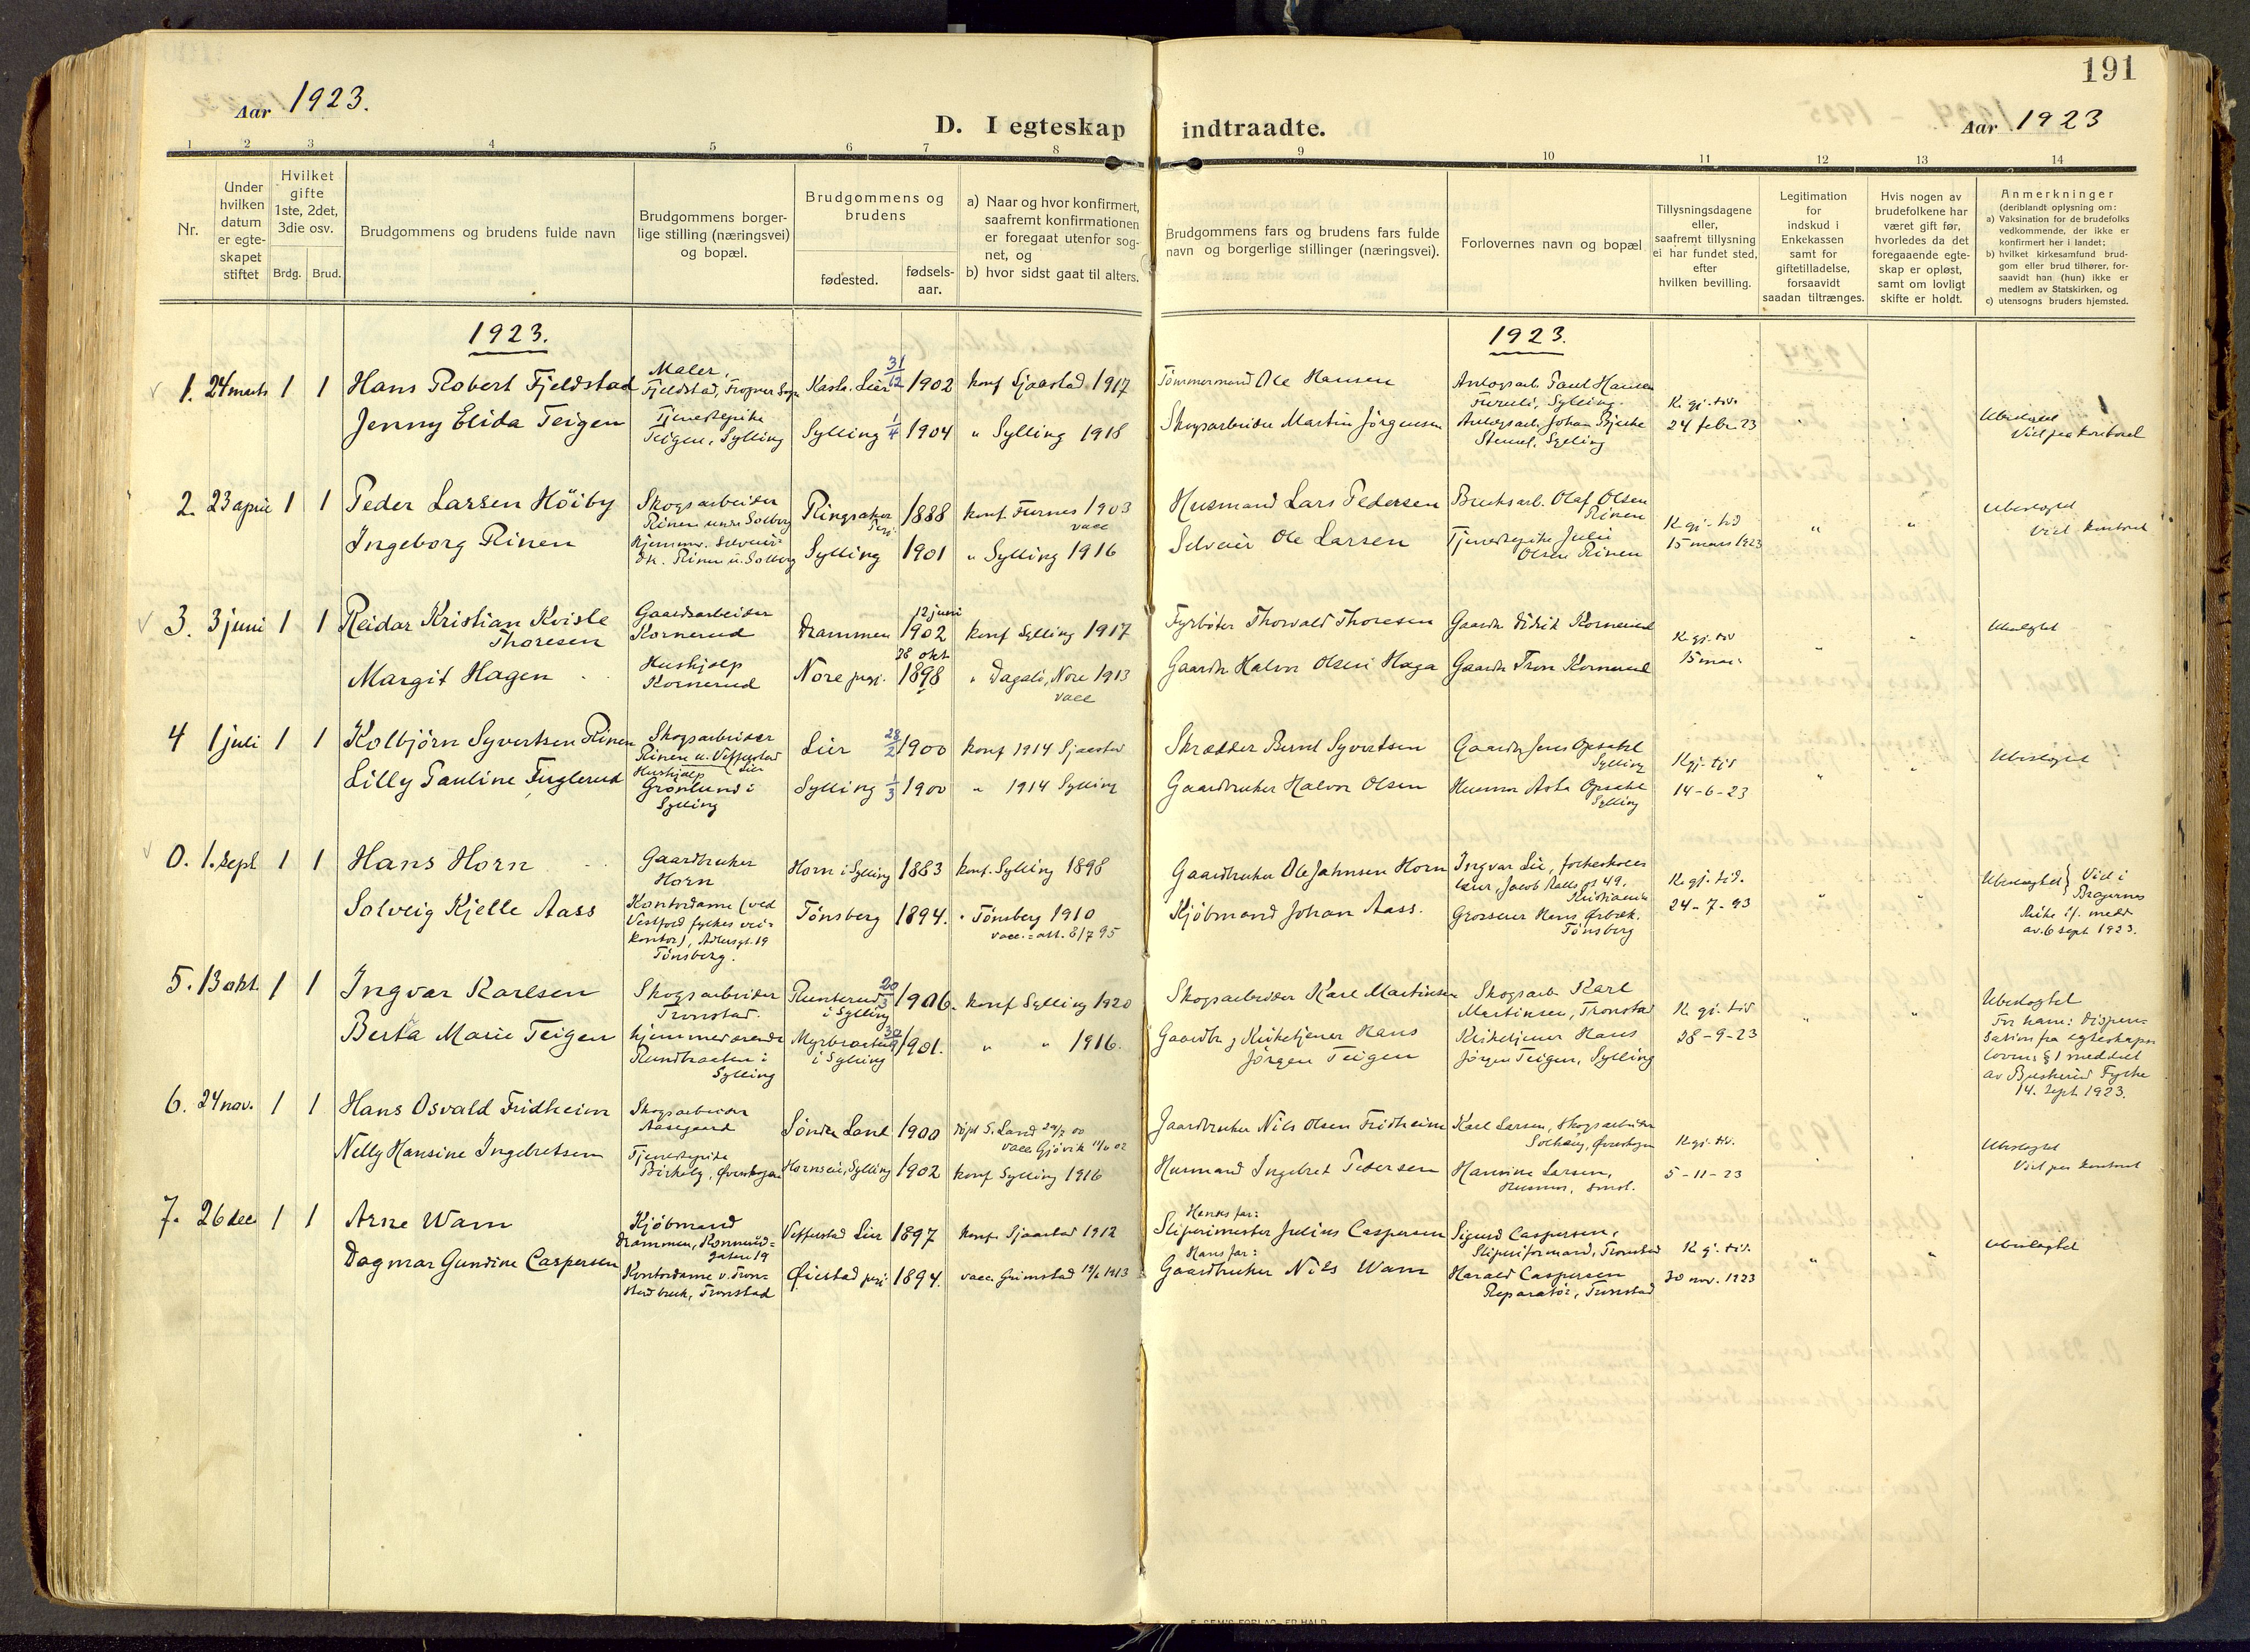 191
Aar 1923.
Aar 1923
D. I egteskap indtraadte.
1 2 3 4 5 6 7 8 9 10 11 12 13 14
Nr.
Under
hvilken
datum
er egte-
skapet
stiftet
Hvilket
gifte
1ste, 2det,
3die osv.
Brdg. Brud.
Brudgommens og brudens fulde navn
Brudgommens borger-
lige stilling (næringsvei)
og bopæl.
Brudgommens og
brudens
fødested.
fødsels-
aar.
a) Naar og hvor konfirmert,
saafremt konfirmationen
er foregaat utenfor sog-
net, og
b) hvor sidst gaat til alters.
Brudgommens fars og brudens fars fulde
navn og borgerlige stillinger (næringsvei).
Forlovernes navn og bopæl
Tillysningsdagene
eller,
saafremt tillysning
ei har fundet sted,
efter
hvilken bevilling.
Legitimation
for
indskud i
Enkekassen
samt for
giftetilladelse,
forsaavidt
saadan tiltrænges.
Hvis nogen av
brudefolkene har
været gift før,
hvorledes da det
foregaaende egte-
skap er opløst,
samt om lovligt
skifte er holdt.
Anmerkninger
(deriblandt oplysning om:
a) Vaksination for de brudefolks
vedkommende, der ikke er
konfirmert her i landet;
b) hvilket kirkesamfund brud-
gom eller brud tilhører, for-
saavidt han (hun) ikke er
medlem av Statskirken, og
c) utensogns bruders hjemsted.
1923.
1923.
1. 24 marts 1 1 Hans Robert Fjeldstad
Maler,
Fjeldstad, Frogner Sogn
31/12 1902 konf Sjaastad 1917
Tömmermand Ole Hansen
Furuli, Sylling
Jenny Elida Teigen
Tjenestepike
Teigen, Sylling
Sylling 1/4 1904 " Sylling 1918
Skogsarbeider Martin Jörgensen
Sylling
K. gj. tid.
24 febr 23
Ubeslegtet
Viet paa kontoret
2. 23 april 1 1 Peder Larsen Höiby
Skogsarbeider
Rinen under Solberg
Ringsaker 1888 konf. Furnes 1903
vacc
Husmand Lars Pedersen
Bruksarb. Olaf Olsen
Rinen
Ingeborg Rinen
Rinen u. Solberg
Sylling 1901 " Sylling 1916
Selveier Ole Larsen
Tjenestepike Julie
Olsen Rinen
K. gj. tid
15 mars 1923
Ubeslegtet
Viet kontoret
3. 3 juni 1 1 Reidar Kristian Kvisle
Thoresen
Gaardsarbeider
Kornerud
Drammen 12 juni 1902 konf Sylling 1917
Fyrböter Thorvald Thoresen
Gaardbr Didrik Kornerud
Margit Hagen
Hushjælp
Kornerud
Nore prgj. 28 okt 1898 " Dagali, Nore 1913
vacc
Gaardbr Halvor Olsen Haga
Gaardbr Tron Kornerud
K. gj. tid
15 mai
Ubeslegtet
4 1 juli 1 1 Kolbjörn Syvertsen Rinen
Skogsarbeider
Rinen u. Vefferstad
Lier
Lier 28/2 1900 konf 1914 Sjaastad
Skrædder Bernt Syvertsen
Gaardbr Jens Opsahl
Sylling
Lilly Pauline Fuglerud
Hushjælp
Grönlund i
Sylling
Sylling 1/3 1900 " 1914 Sylling
Gaardbruker Halvor Olsen
Husmor Asta Opsahl
Sylling
K. gj. tid
14-6-23
Ubeslegtet
0. 1. sept 1 1 Hans Horn
Gaardbruker
Horn
Horn i Sylling 1883 konf. Sylling 1898
Gaardbruker Ole Jahnsen Horn
Ingvar Lie, folkeskole
Kristiania
Solveig Kjelle Aass
Kontordame (ved
Vestfold fylkes vei-
kontor), 19
Tönsberg.
Tönsberg 1894. " Tönsberg 1910
vacc. = att. 8/7 95
Kjöbmand Johan Aass.
Grosserer Hans Ørbæk.
Tönsberg
K. gj. tid.
24-7-93
Ubeslegtet } Viet i
Bragernes
kirke if. medd
av 6 sept 1923.
5. 13 okt. 1 1 Ingvar Karlsen
Skogsarbeider
Tronstad.
i Sylling 20/3 1906. konf Sylling 1920
Skogsarbeider Karl Martinsen
Skogsarb Karl
Martinsen, Tronstad
Berta Marie Teigen
hjemmeværende
Rundbraaten i
Sylling
Myrbraaten
i Sylling 1901. " " 1916.
Gaardbr. og Kirketjener Hans
Jörgen Teigen
Kirketjener Hans
Jörgen Teigen, Sylling
K. gj. tid
28-9-23
Ubeslegtet
For ham: dispen-
sation fra egteskaps
lovens § 1 meddelt
av Buskerud Fylke
14. sept 1923.
6. 24 nov. 1 1 Hans Osvald Fridheim
Skogsarbeider
Aasegaard
Söndre Land 1900 döpt S. Land 29/7 00
vacc. Gjövik
Gaardbruker Nils Olsen Fridheim
Karl Larsen, Skogsarbeider
Solhaug, Øverskogen
Nelly Hansine Ingebretsen
Tjenestepike
Birkely, Øverskogen
Hornseie, Sylling 1902 konf Sylling 1916
Husmand Ingebret Pedersen
Hansine Larsen,
Husmor,
K. gj. tid.
5-11-23
Ubeslegtet
Viet paa kontoret
7. 26 dec 1 1 Arne Wam
Kjöbmand
Drammen, Konnerud-
gaten 19
Vefferstad Lier 1897 konf. Sjaastad 1912
Hennes far:
Sliperimester Julius Caspersen
Sigurd Caspersen,
Sliperiformand, Tronstad
Dagmar Gundine Caspersen
Kontordame v. Tron-
stad bruk, Tronstad
Øiestad prgj. 1894. vacc. Grimstad 1913
Hans far:
Gaardbruker Nils Wam
Harald Caspersen
Reparatör, Tronstad
K. gj. tid.
30 nov. 1923
Ubeslegtet